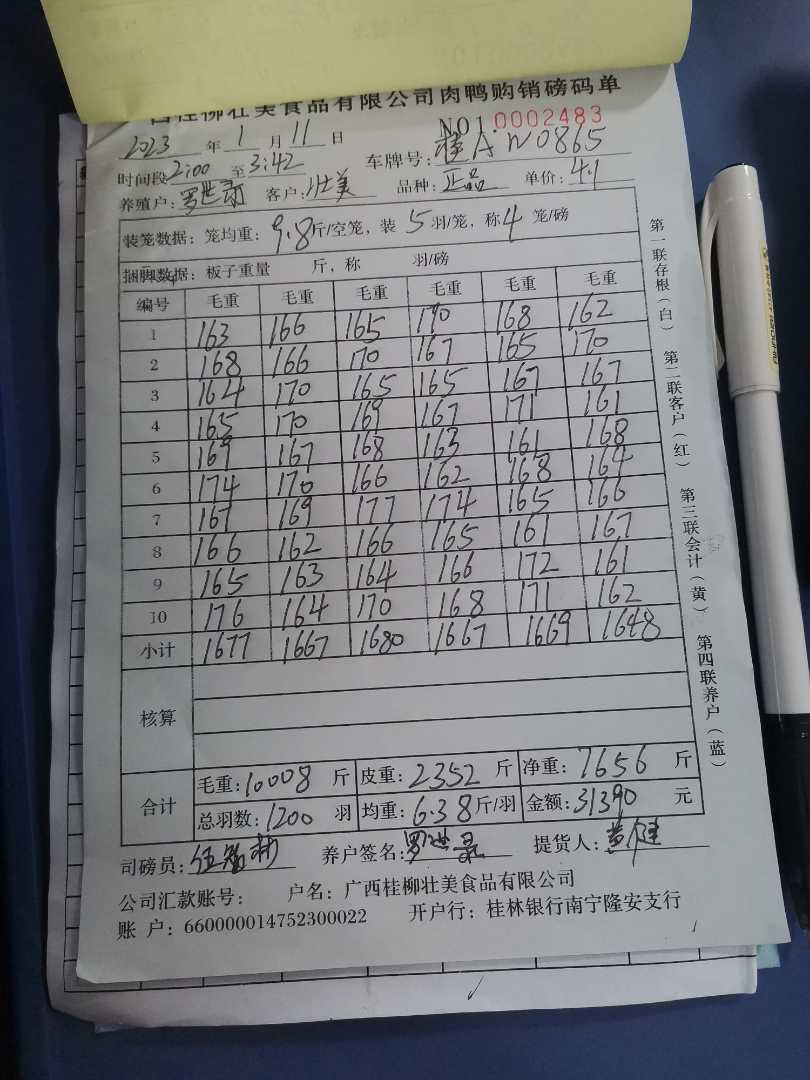 西桂柳壮美食品有限公司肉鸭购销磅码单
NO1.0002483
2023 年 1 月 11 日
时间段 2:00 至 3:42 车牌号: 桂A W0865
养殖户: 罗世 客户: 壮美 品种: 正品 单价: 4.1
装笼数据: 笼均重: 9.8 斤/空笼, 装 5 羽/笼, 称 4 笼/磅
捆脚数据: 板子重量 斤, 称 羽/磅
编号 毛重 毛重 毛重 毛重 毛重 毛重
1 163 166 165 170 168 162
2 168 166 170 167 165 170
3 164 170 165 165 167 167
4 165 170 169 167 171 161
5 169 167 168 163 161 168
6 174 170 166 162 168 164
7 167 169 177 174 165 166
8 166 162 166 165 161 167
9 165 163 164 166 172 161
10 176 164 170 168 171 162
小计 1677 1667 1680 1667 1669 1648
核算
合计
毛重: 10008 斤 皮重: 2352 斤 净重: 7656 斤
总羽数: 1200 羽 均重: 6.38 斤/羽 金额: 31390 元
司磅员: 养户签名: 罗世 提货人: 黄健
公司汇款账号: 户名: 广西桂柳壮美食品有限公司
账 户: 660000014752300022 开户行: 桂林银行南宁隆安支行
第一联存根(白) 第二联客户(红) 第三联会计(黄) 第四联养户(蓝)